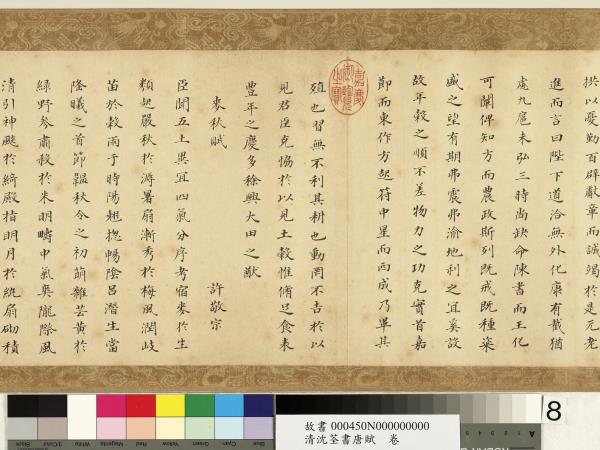 拱以憂勤百辟獻章而誠竭於是元老
進而言曰陛下道洽無外化康有截猶
處九扈未弘三時尚缺命陳書而王化
可闡俾知方而農政斯列既戒既種粢
盛之望有期弗震弗渝地利之宜奚設
故年穀之順不差物力之功克實首嘉
節而東作方起符中星而西成乃畢其
嘉慶御覽之寶
殖也習無不利其耕也動罔不吉於以
見君臣克協於以見土穀惟脩足食表
豐年之慶多稌興大田之猷
麥秋賦 許敬宗
臣聞五土異宜四氣分序考宿麥於生
類起嚴秋於溽暑扇漸秀於梅風潤岐
苗於穀雨于時陽翹揔暢陰呂潛生當
隆曦之首節韞秋令之初萠雜芸黃於
綠野參肅殺於朱明疇中氣奧隴際風
清引神飈於綺殿指明月於紈扇砌積
Black 3/Color White Magenta Red Yellow Green Cyan Blue
故書 000450N000000000
清沈荃書唐賦 卷
A 5 4 3
8